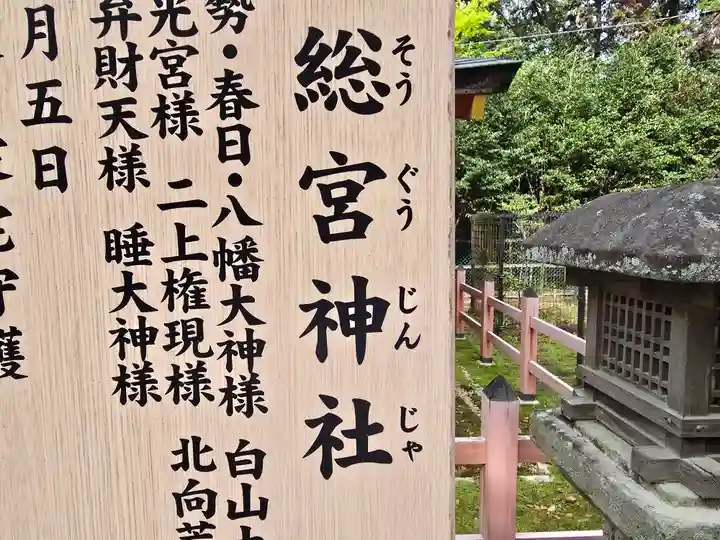 総宮神社
そうぐうじんじゃ
勢・春日・八幡大神様 白山
光宮様 二上権現様 北向
弁財天様 睡大神様
月五日
守護